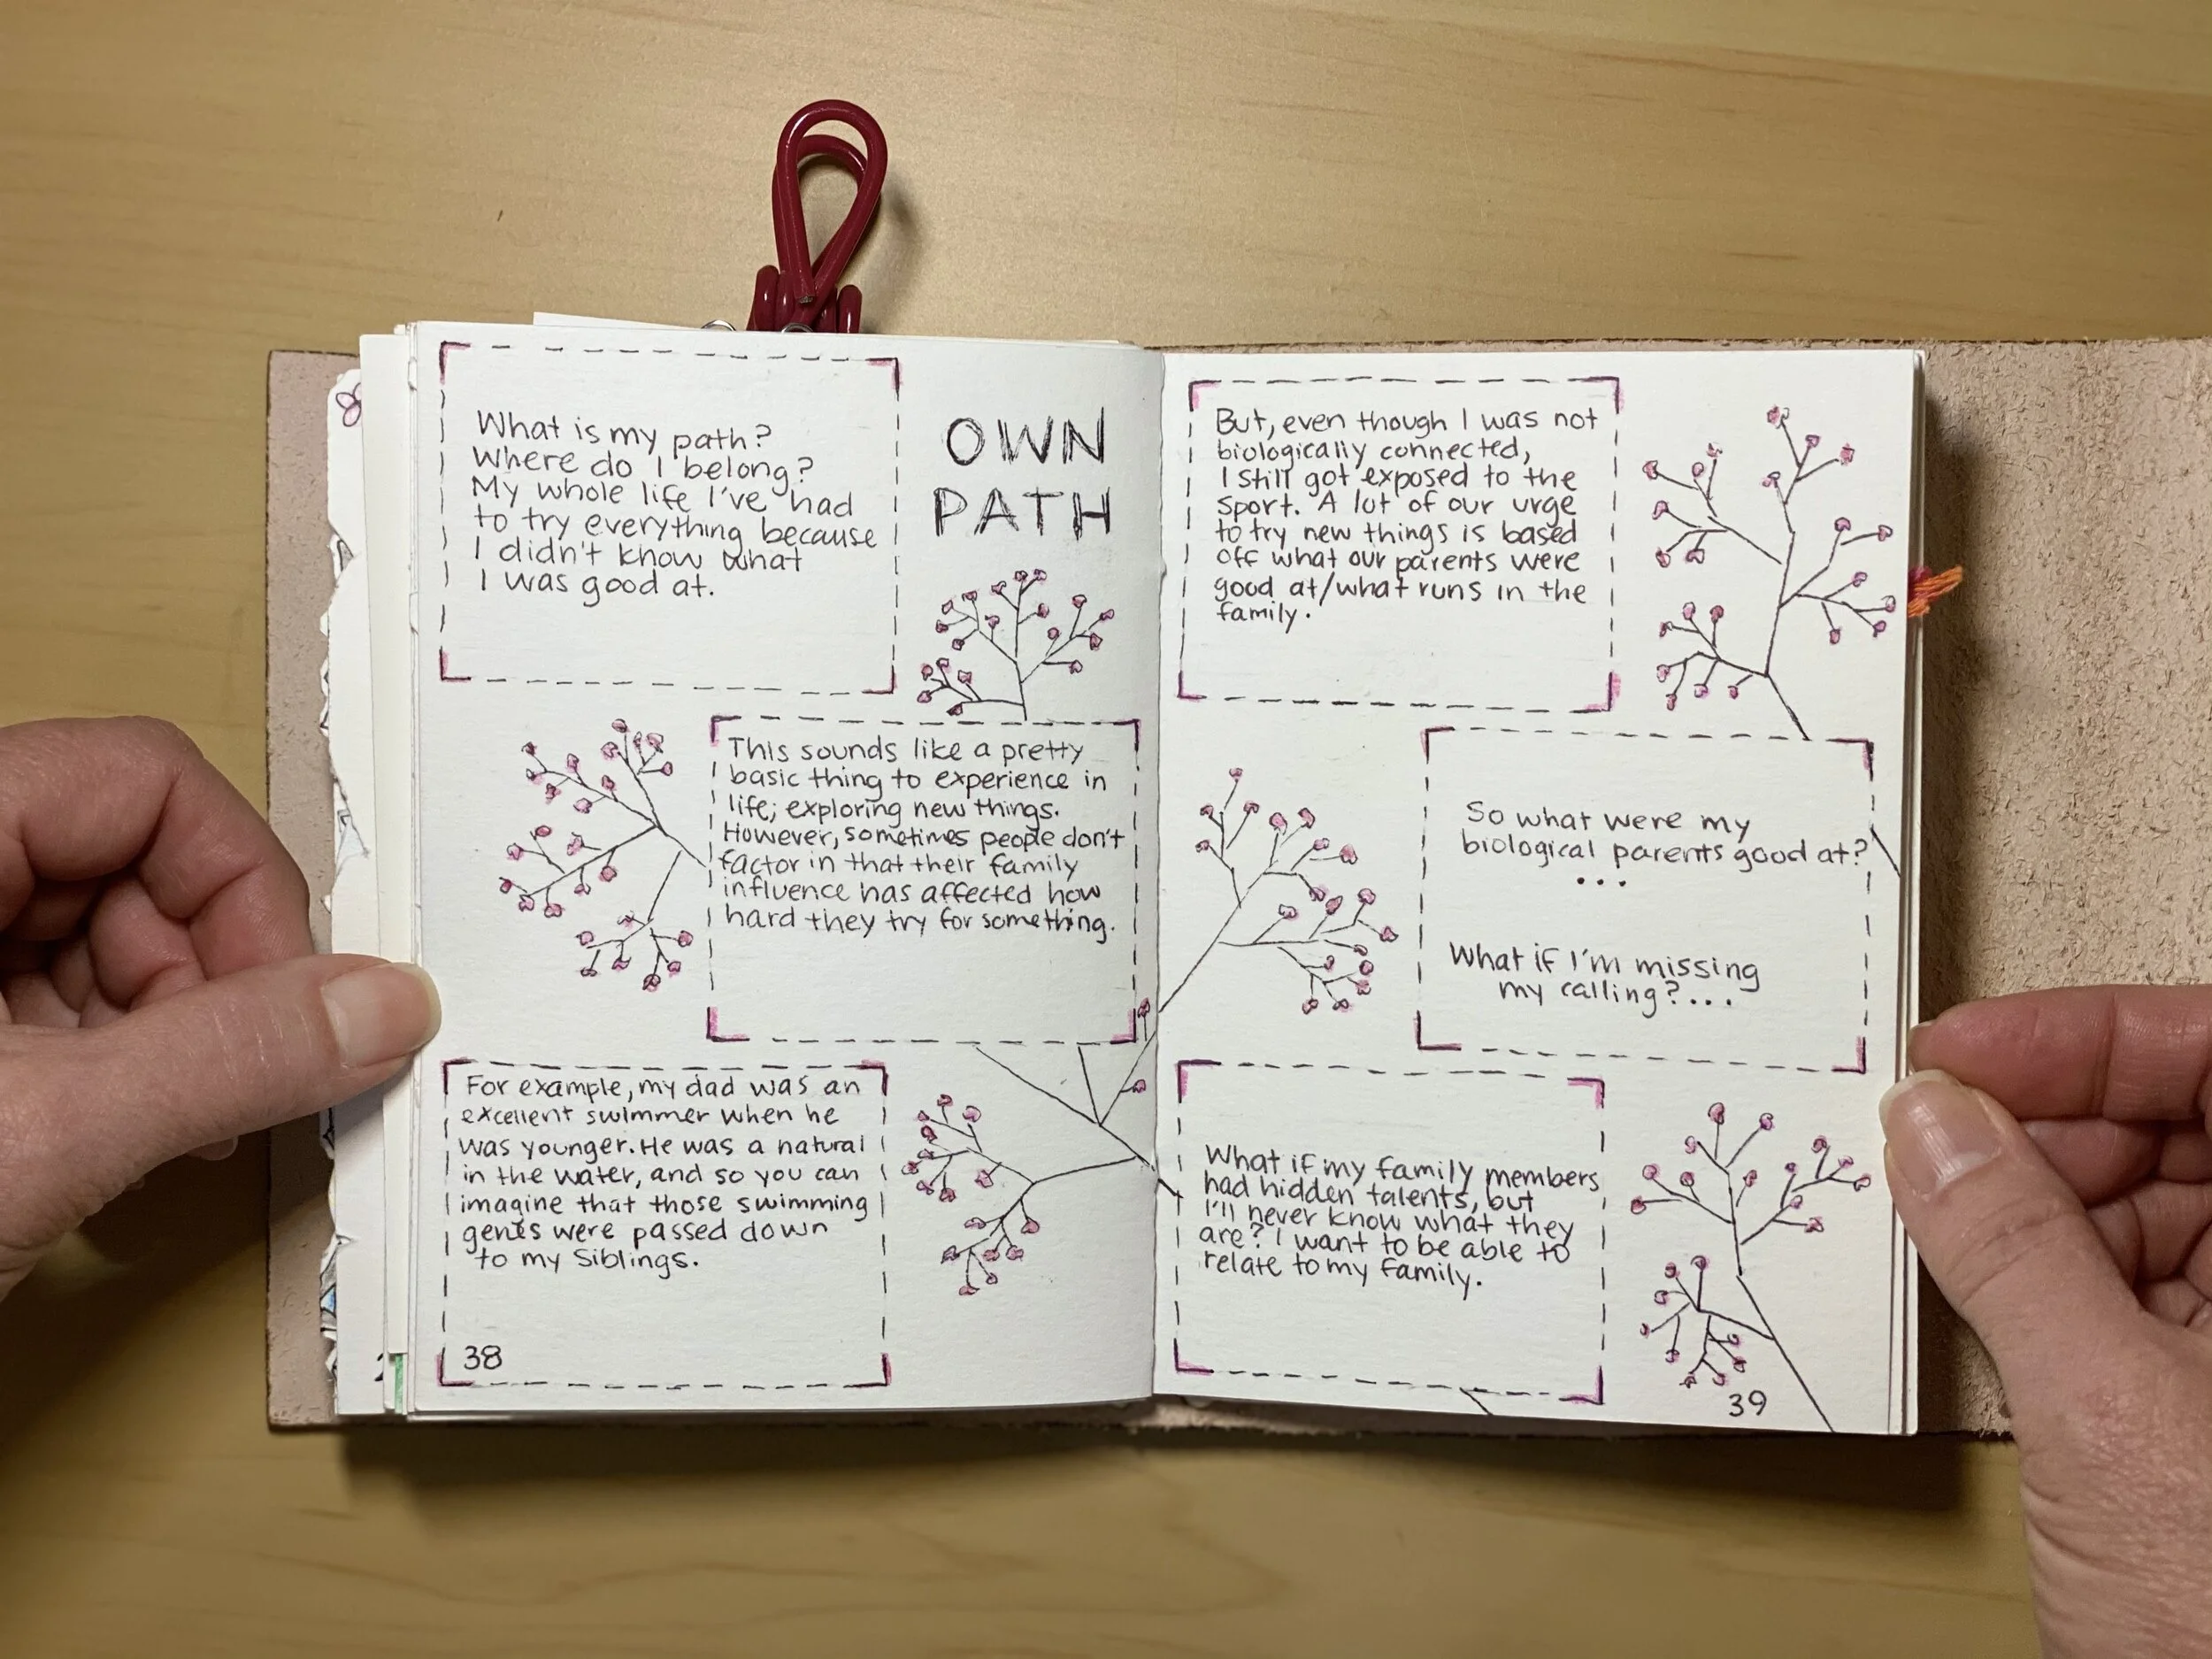 OWN
PATH
What is my path?
Where do I belong?
My whole life I've had
to try everything because
I didn't know what
I was good at.
This sounds like a pretty
basic thing to experience in
life; exploring new things.
However, sometimes people don't
factor in that their family
influence has affected how
hard they try for something.
For example, my dad was an
excellent swimmer when he
was younger. He was a natural
in the water, and so you can
imagine that those swimming
genes were passed down
to my siblings.
38
But, even though I was not
biologically connected,
I still got exposed to the
sport. A lot of our urge
to try new things is based
off what our parents were
good at/what runs in the
family.
So what were my
biological parents good at?
...
What if I'm missing
my calling?...
What if my family members
had hidden talents, but
I'll never know what they
are? I want to be able to
relate to my family.
39